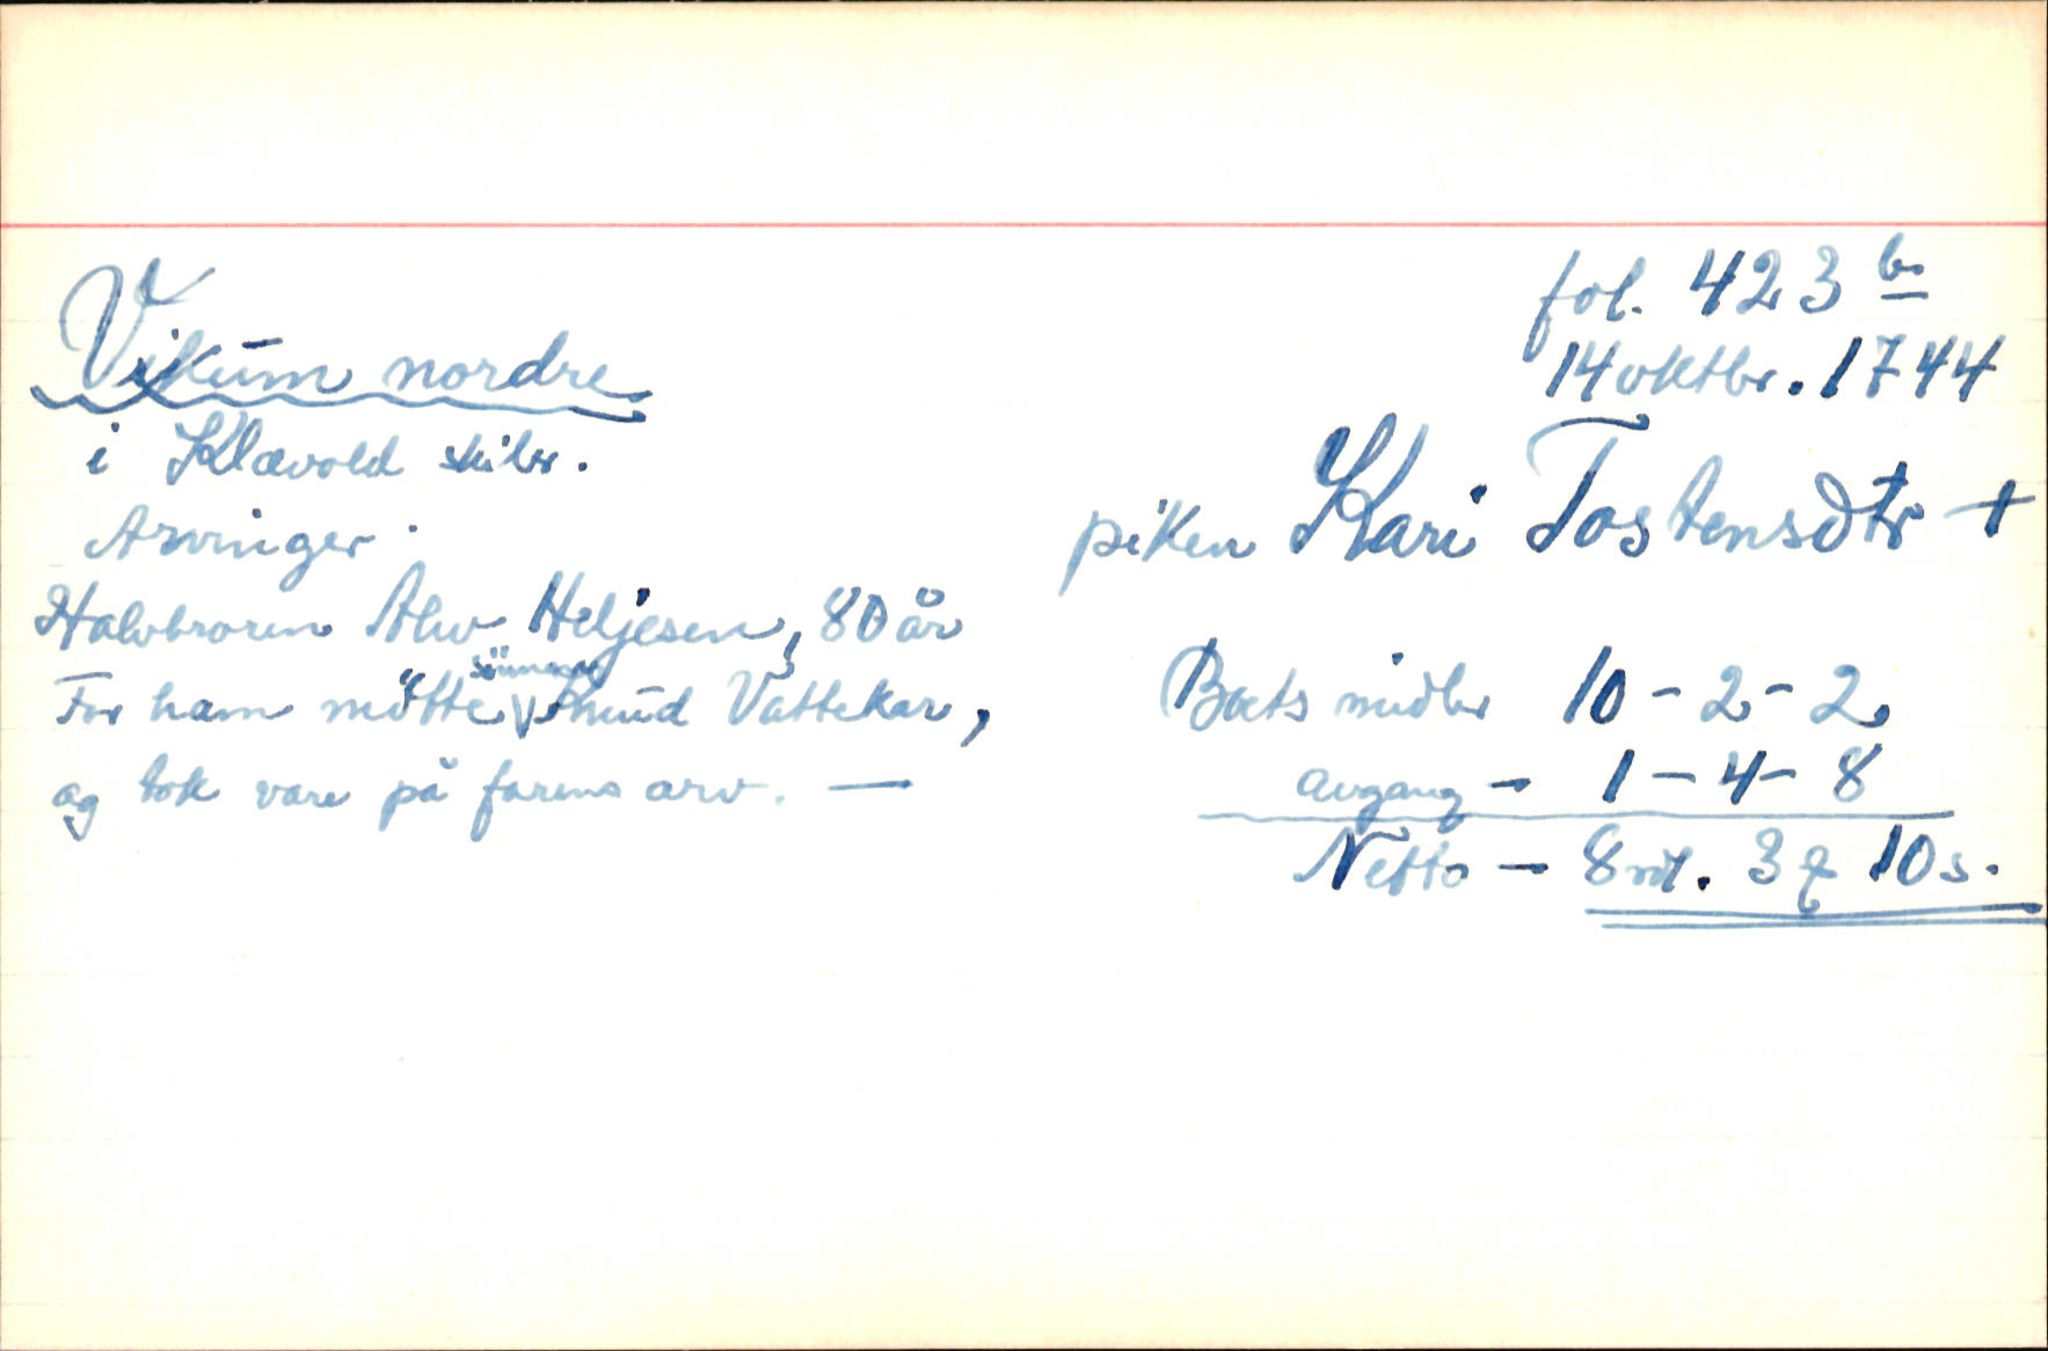 fol. 423 b.
14 oktbr. 1744
Vikum nordre
i Klævold skibr.
piken Kari Tostensdtr +
Arvinger.
Halvbroren Alw Heljesen, 80 år
For ham mötte sönnen Knud Vattekar,
og tok vare på farens arv. —
Boets midler 10 - 2 - 2
avgang - 1 - 4 - 8
Netto - 8 rdl. 3 q 10 s.